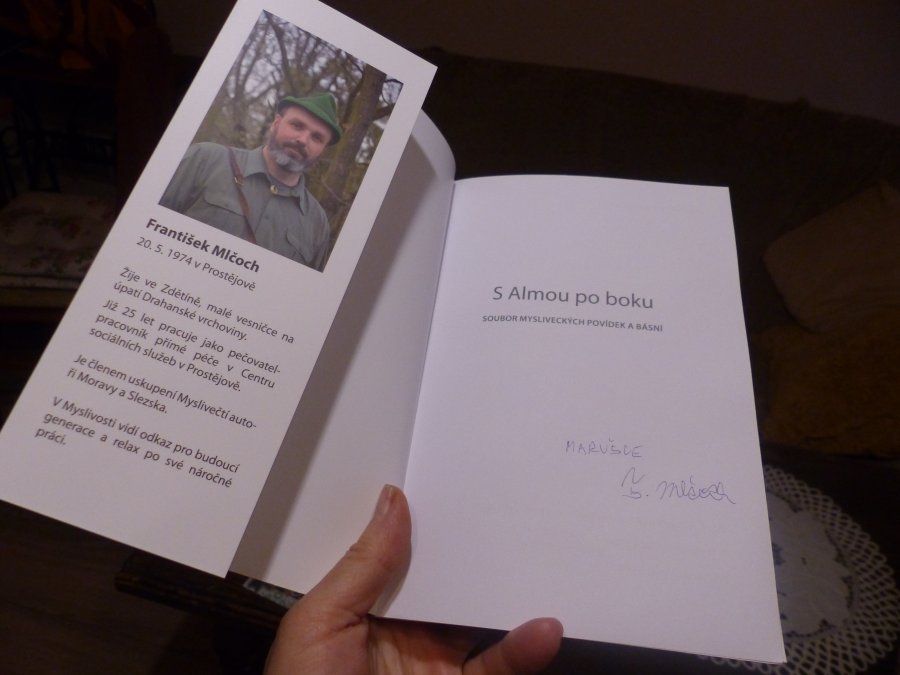 František Mlčoch
20. 5. 1974 v Prostějově
Žije ve Zdětíně, malé vesničce na
úpatí Drahanské vrchoviny.
Již 25 let pracuje jako pečovatel-
pracovník přímé péče v Centru
sociálních služeb v Prostějově.
Je členem uskupení Myslivečtí auto-
ři Moravy a Slezska.
V Myslivosti vidí odkaz pro budoucí
generace a relax po své náročné
práci.
S Almou po boku
SOUBOR MYSLIVECKÝCH POVÍDEK A BÁSNÍ
MARUŠCE
Mlčoch